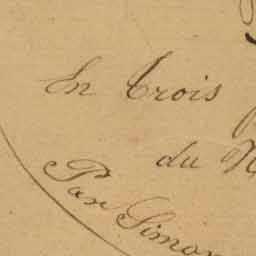 En trois
du
Par Simon